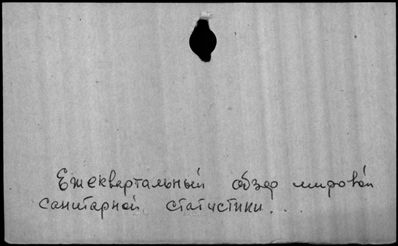 Ежеквартальный обзор мировой
санитарной статистики...